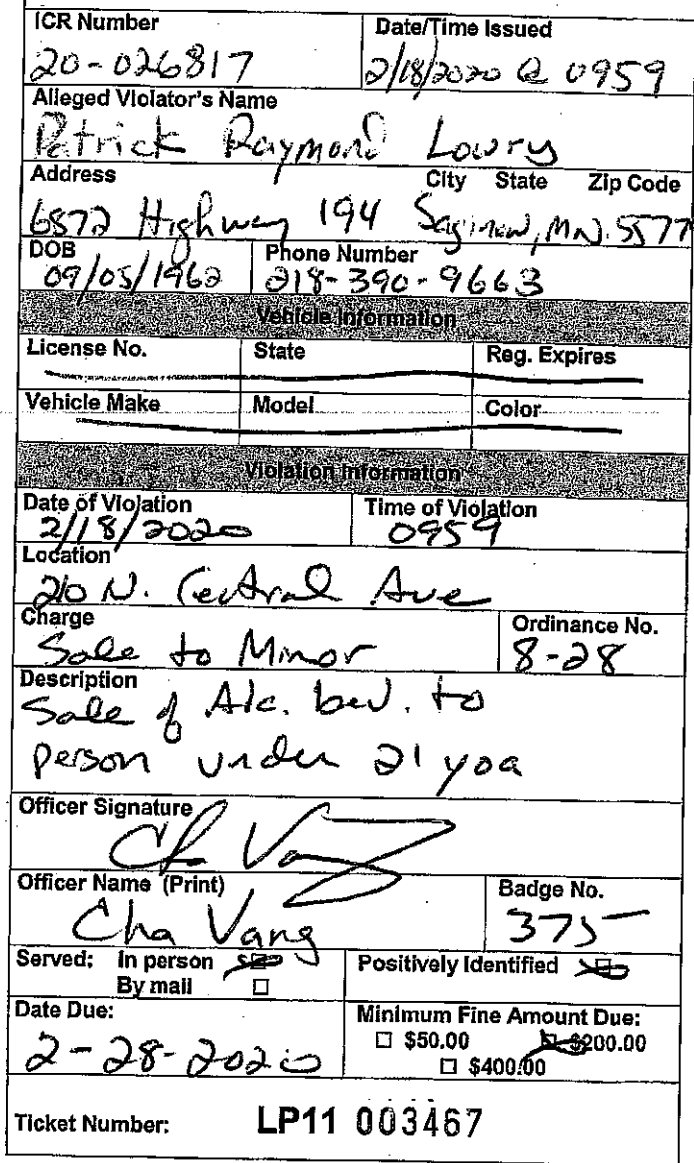 ICR Number Date/Time Issued
20-026817 2/18/2020 @ 0959
Alleged Violator's Name
Patrick Raymond Lowry
Address City State Zip Code
6872 Highway 194 Saginaw, MN. 5577
DOB Phone Number
09/05/1962 218-390-9663
Vehicle Information
License No. State Reg. Expires
Vehicle Make Model Color
Violation Information
Date of Violation Time of Violation
2/18/2020 0959
Location
210 N. Central Ave
Charge Ordinance No.
Sale to Minor 8-28
Description
Sale of Alc. bev. to
person under 21 yoa
Officer Signature
Cha Vang
Officer Name (Print) Badge No.
Cha Vang 375
Served: In person Positively Identified
By mail
Date Due: Minimum Fine Amount Due:
2-28-2020 $50.00 $200.00
$400.00
Ticket Number: LP11 003467